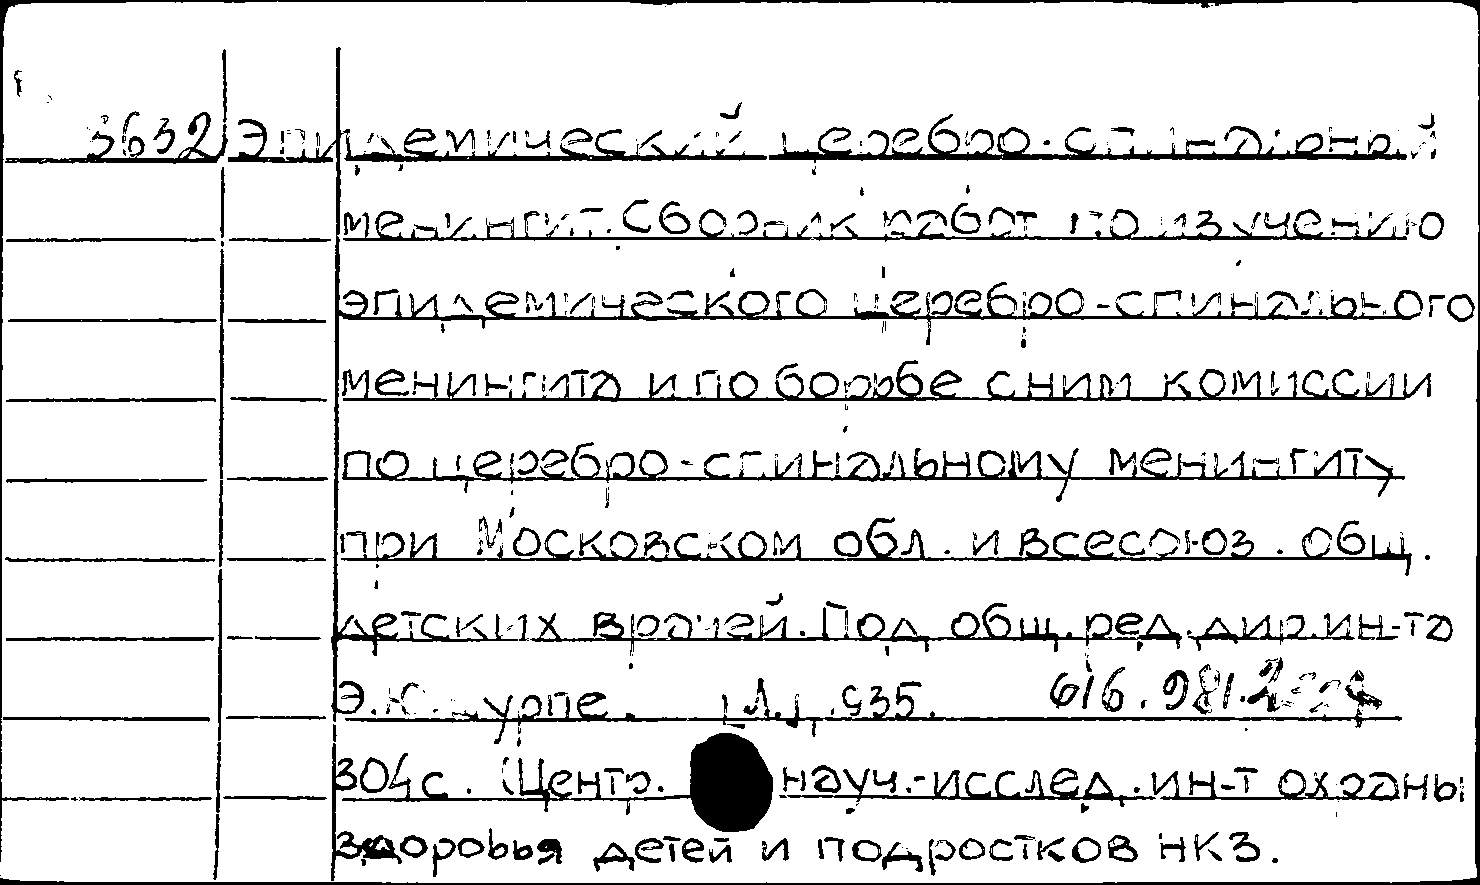 3632 Эпидемический церебро-спинальный
менингит. Сборник работ по изучению
эпидемического церебро-спинального
менингита и по борьбе с ним комиссии
по церебро-спинальному менингиту
при Московском обл. и всесоюз. общ.
детских врачей. Под общ. ред. дир. ин-та
Э.Ю. Шурпе. 616.981.2
304с. (Центр. науч.-исслед. ин-т охраны
здоровья детей и подростков НКЗ.